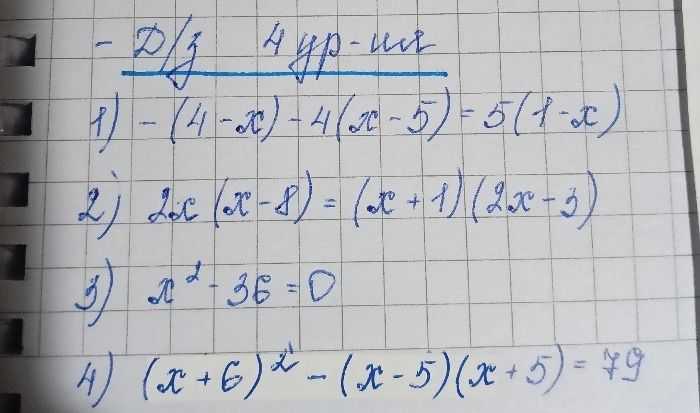 - Д/з 4 ур-ия
1) -(4-х)-4(х-5)=5(1-х)
2) 2х(х-8)=(х+1)(2х-3)
3) х²-36=0
4) (х+6)²-(х-5)(х+5)=79